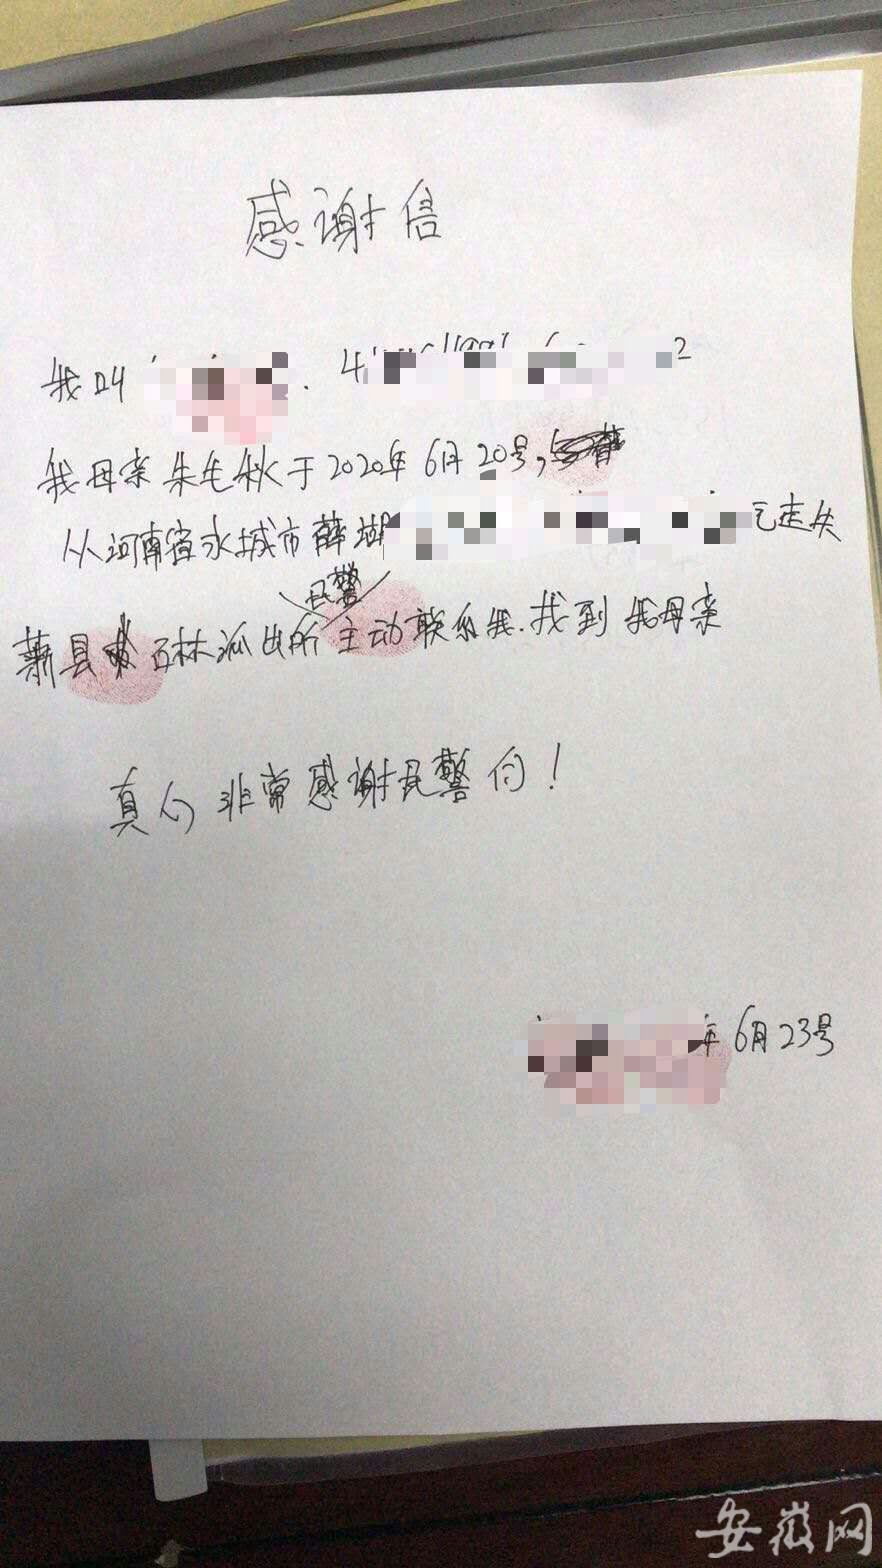 感谢信
我叫
我母亲朱毛秋于2020年6月20号,
从河南省永城市薛湖 走失
民警
萧县石林派出所主动联系我.找到我母亲
真的非常感谢民警们!
年6月23号
安徽网